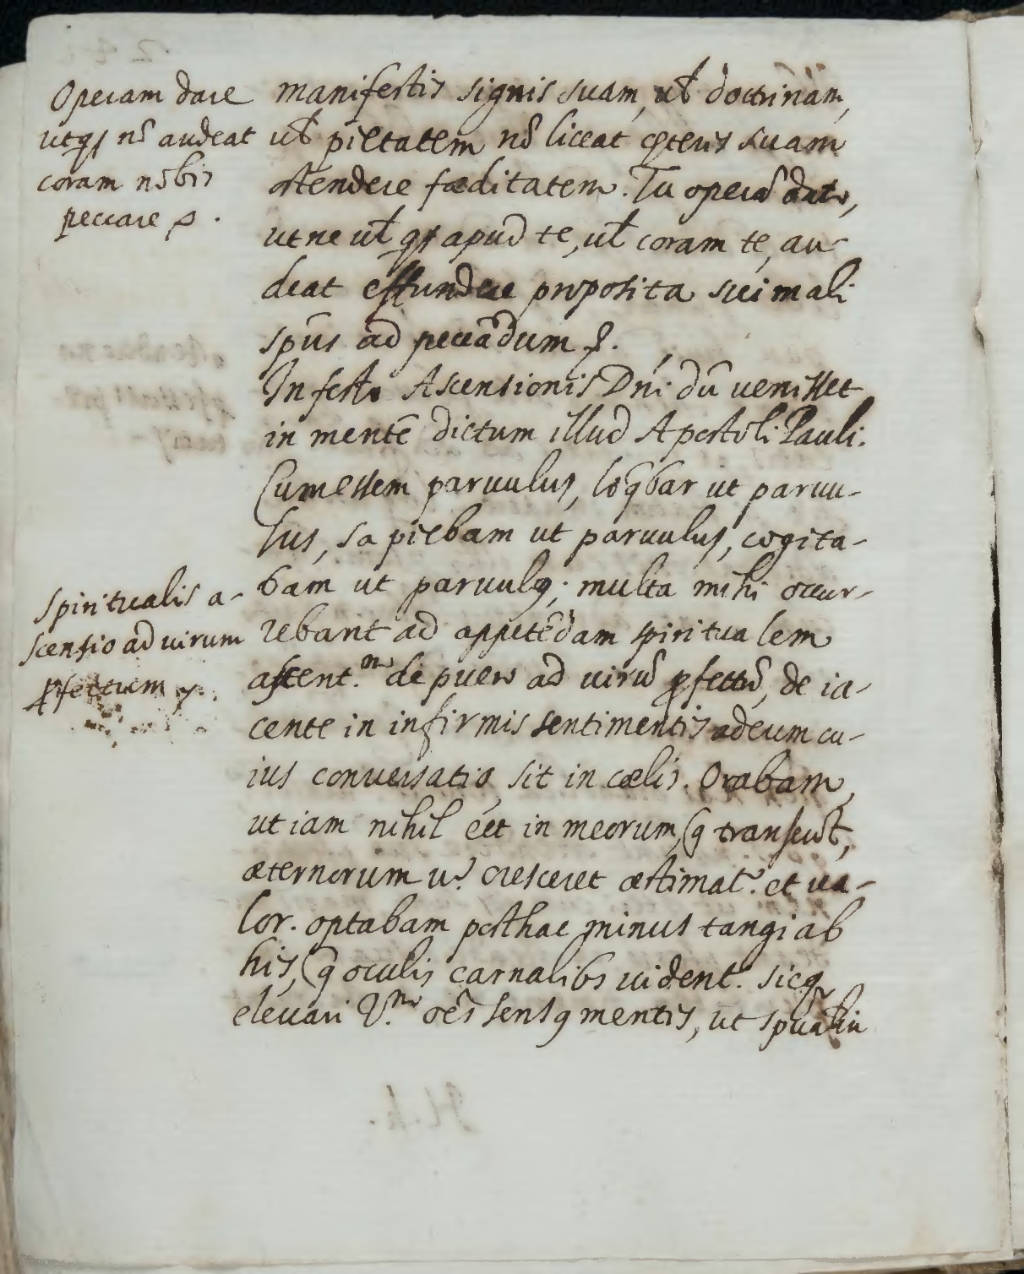 Operam dare
utqs nō audeat
coram nobis
peccare
manifestis signis suam, ul doctrinam,
ul pietatem nō liceat ceteris suam
ostendere fœditatem. Tu operā dato,
ut ne ul qs apud te, ul coram te, au-
deat effundere proposita sui mali
spūs ad peccādum
In festo Ascensionis Dñi dū venisset
in mentē dictum illud Apostoli Pauli.
Cum essem paruulus, loqbar ut paruu-
lus, sapiebam ut paruulus, cogita-
bam ut paruulq; multa mihi occur-
Spiritualis a-
scensio ad uirum
pfectum
rebant ad appetēdam spiritualem
ascent.m de puero ad uirū pfectū, de ia-
cente in infirmis sentimentis ad eum cu-
ius conuersatio sit in cœlis. Orabam,
ut iam nihil eēt in meorum, q transeūt,
æternorum u.º cresceret æstimat.º et ua-
lor. optabam posthac minus tangi ab
his, q oculis carnalibs uident.r sicq
eleuari oēs sensq mentis, ut spualiu